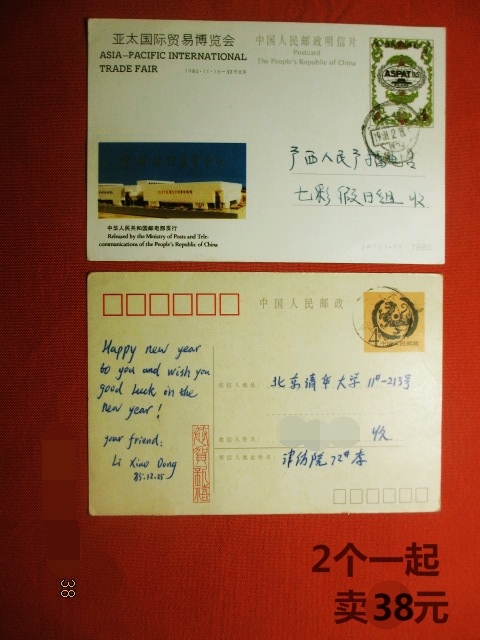 亚太国际贸易博览会
ASIA-PACIFIC INTERNATIONAL
TRADE FAIR
中国人民邮政明信片
Postcard
The People's Republic of China
ASPAT'85
广西人民广播电台
七彩假日组 收
中华人民共和国邮电部发行
Released by the Ministry of Posts and Tele-
communications of the People's Republic of China
中国人民邮政
4
中国人民邮政
Happy new year
to you and wish you
good luck in the
new year!
your friend:
Li Xiao Dong
85.12.25
恭贺新禧
收信人地址:
北京清华大学 11#-213号
收信人姓名:
收
寄信人地址姓名:
津纺院 72# 李
2个一起
卖38元
38